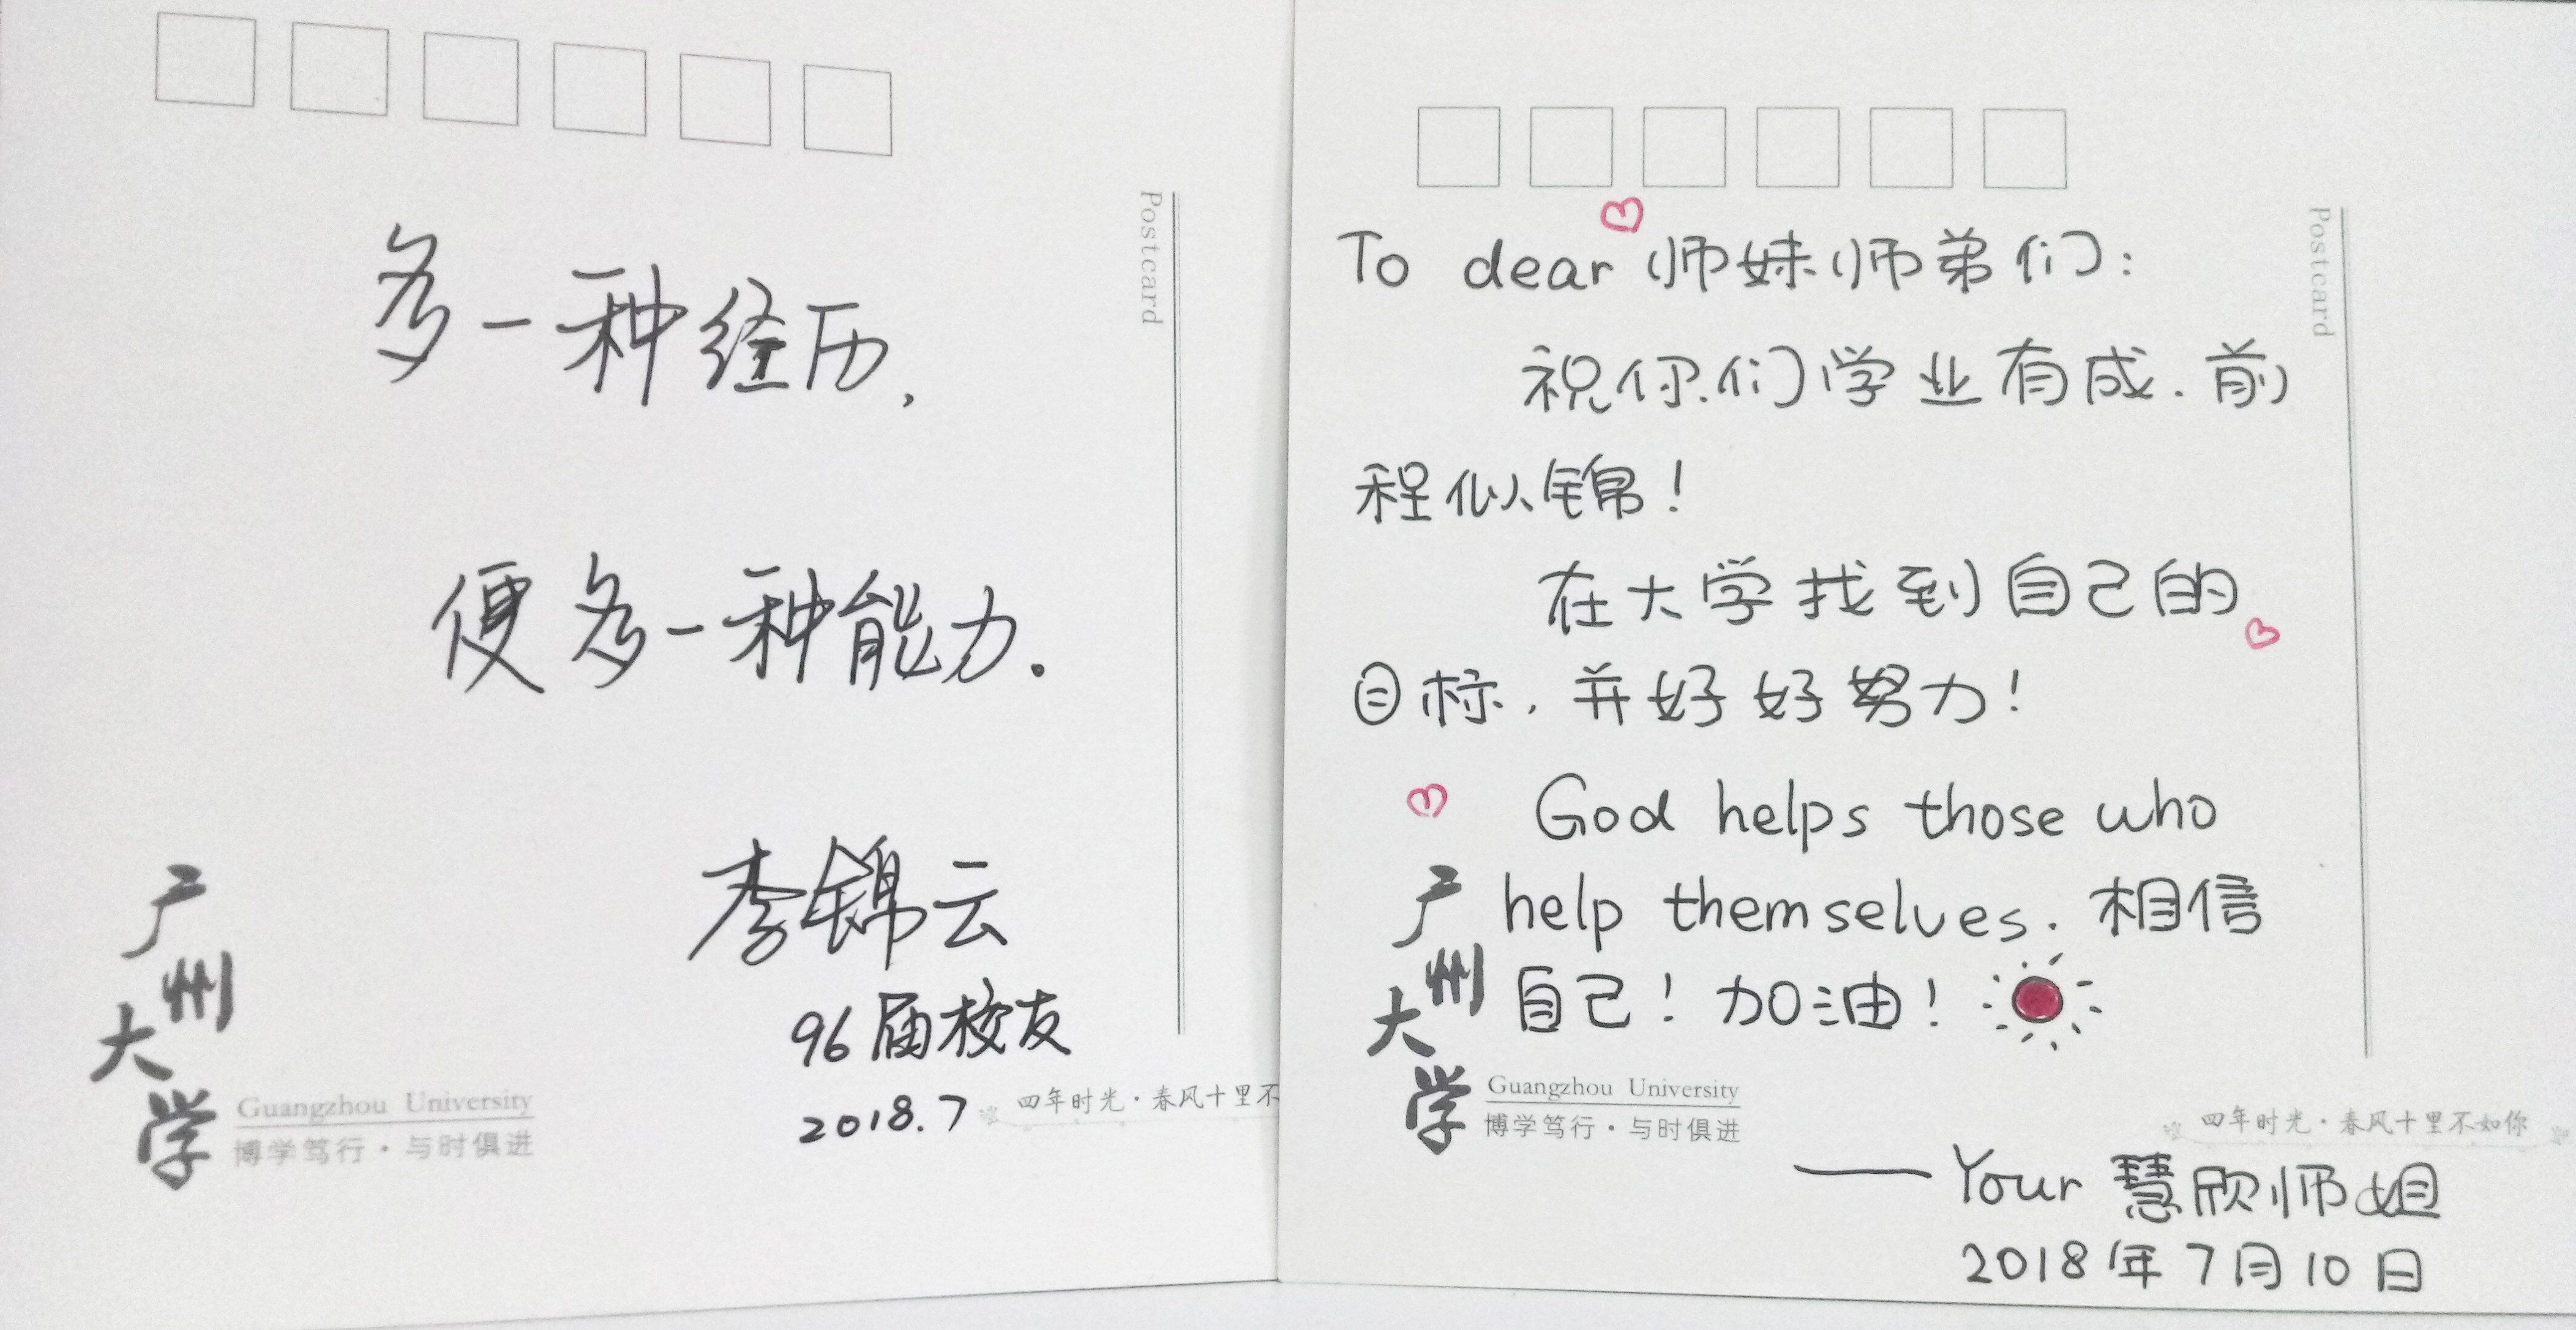 Postcard
多一种经历,
便多一种能力.
李锦云
96届校友
2018.7
广州大学
Guangzhou University
博学笃行·与时俱进
四年时光·春风十里不
Postcard
To dear 师妹师弟们:
祝你们学业有成.前
程似锦!
在大学找到自己的
目标,并好好努力!
God helps those who
help themselves. 相信
自己!加油!
广州大学
Guangzhou University
博学笃行·与时俱进
四年时光·春风十里不如你
——Your 慧欣师姐
2018年7月10日